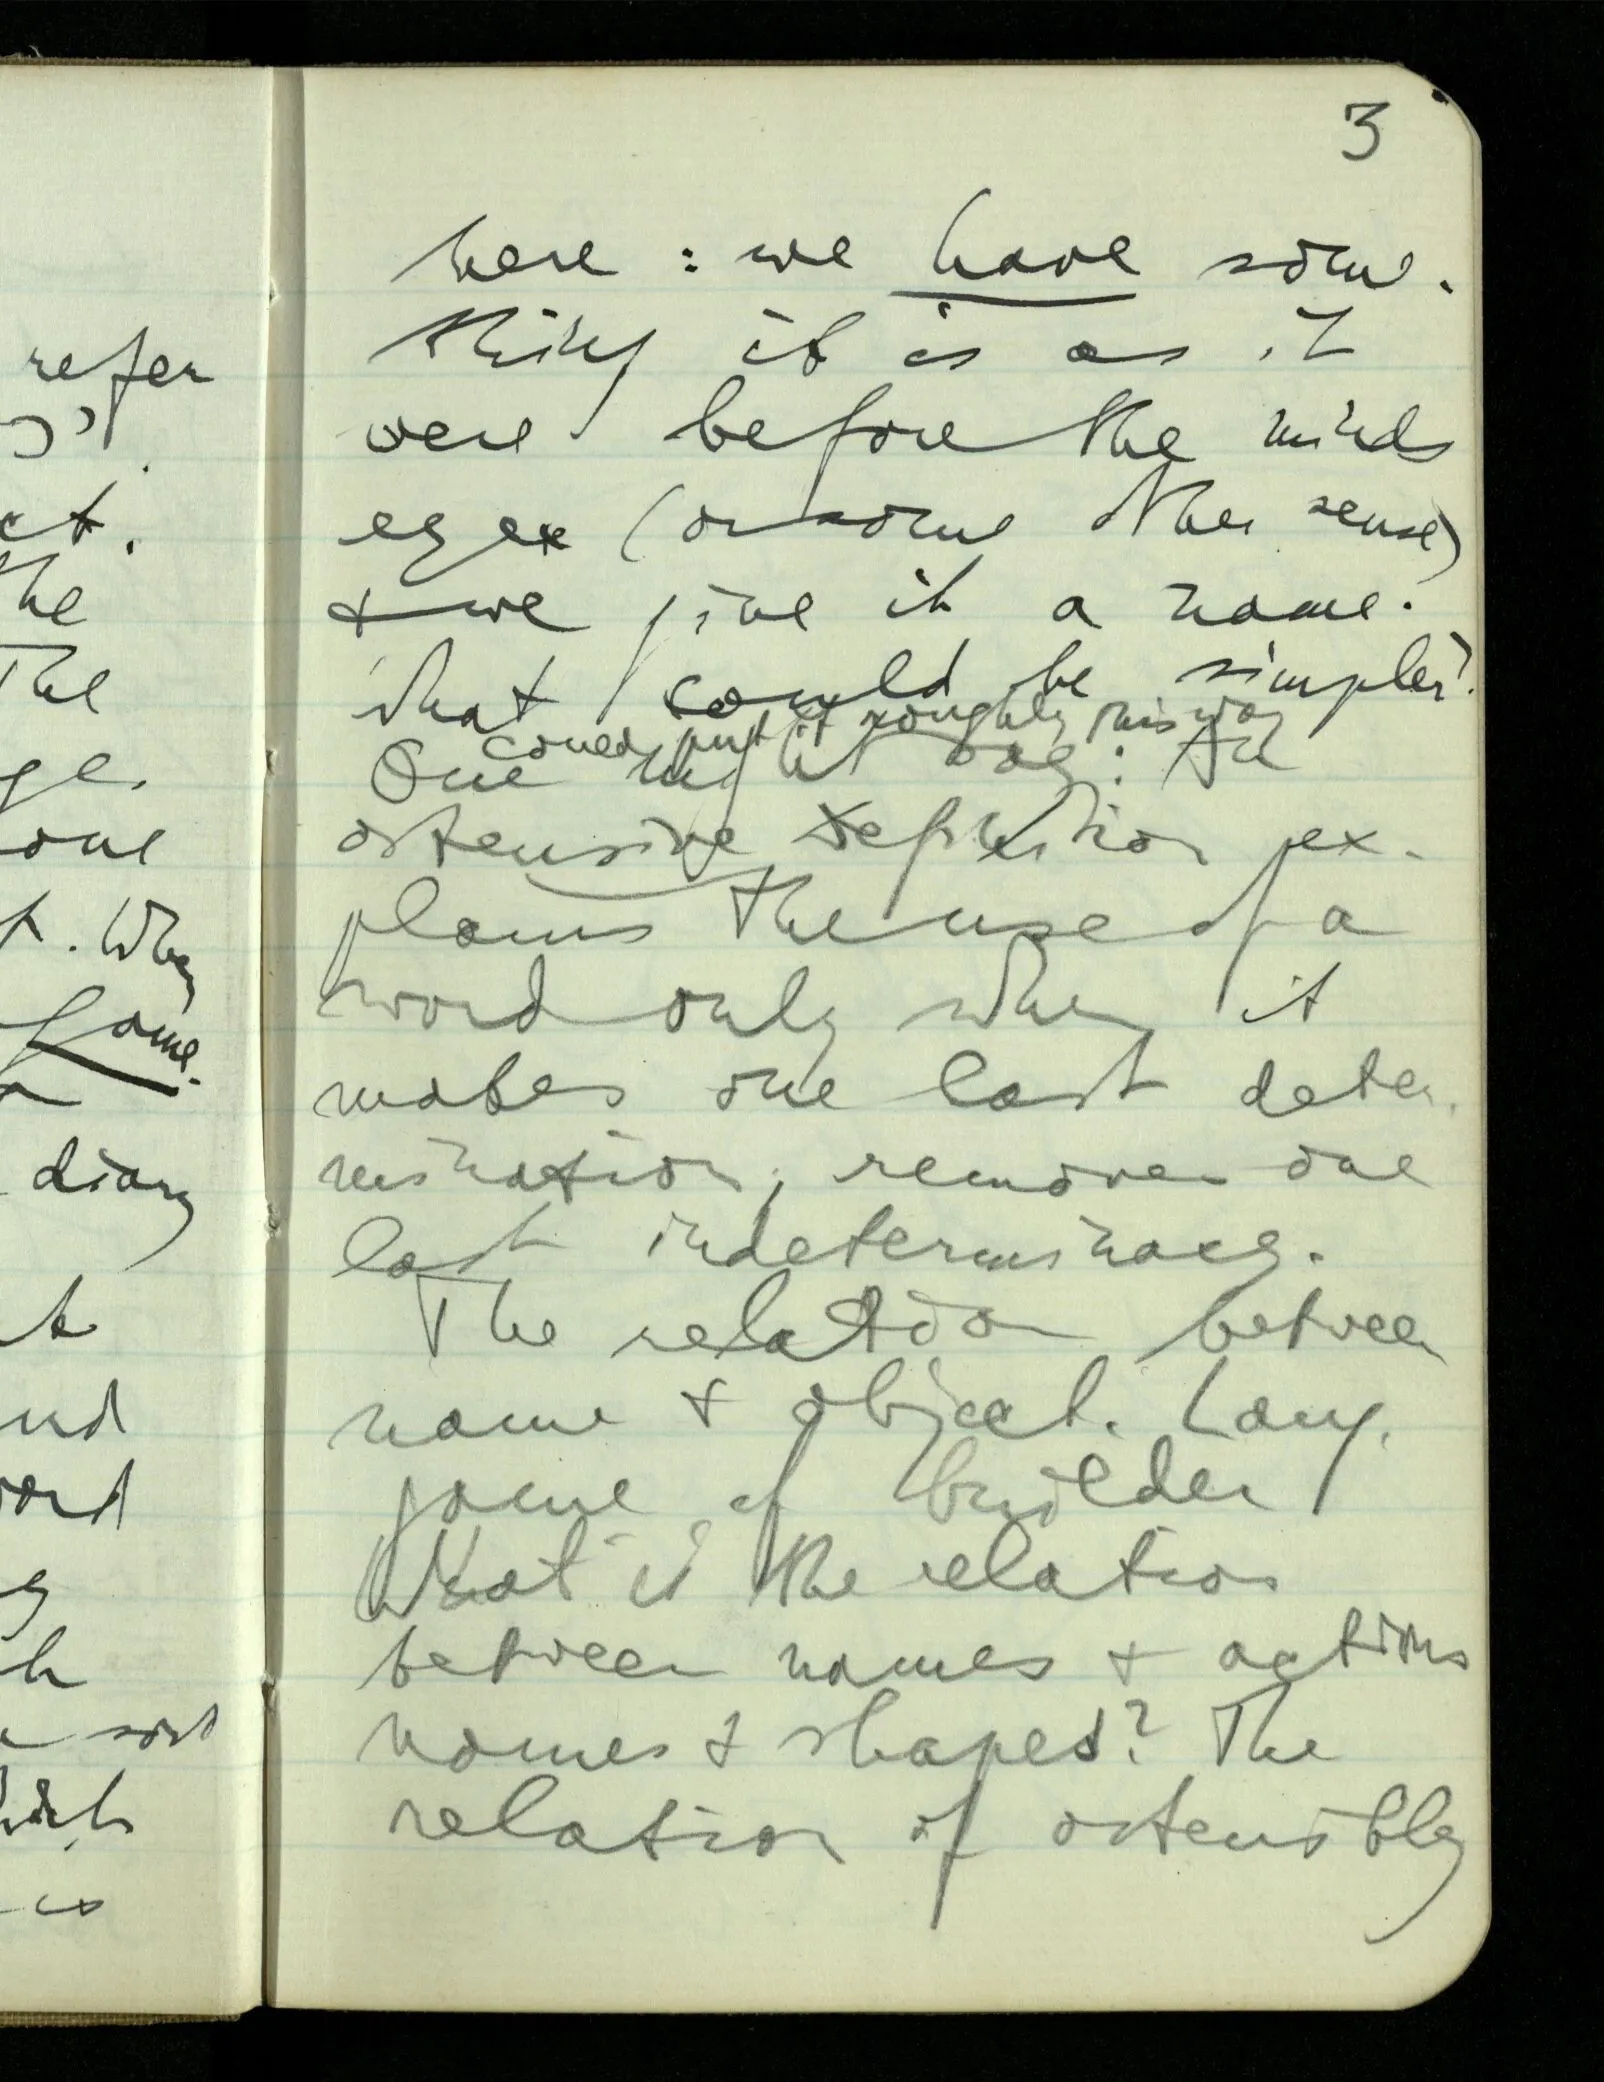 refer
ct.
the
The
ge.
one
t. When
Game.
a
diary
it
und
word
sort
which
is
3
here : we have some-
thing it is as it
were before the minds
eyex (or some other sense)
+ we give it a name.
What could be simpler?
could put it roughly this way
One might say: An
ostensive definition ex-
plains the use of a
word only when it
makes one last deter-
mination, removes one
last indeterminacy.
The relation between
name + object. Lang.
game of builder
What is the relation
between names + actions
names + shapes? The
relation of ostensibly